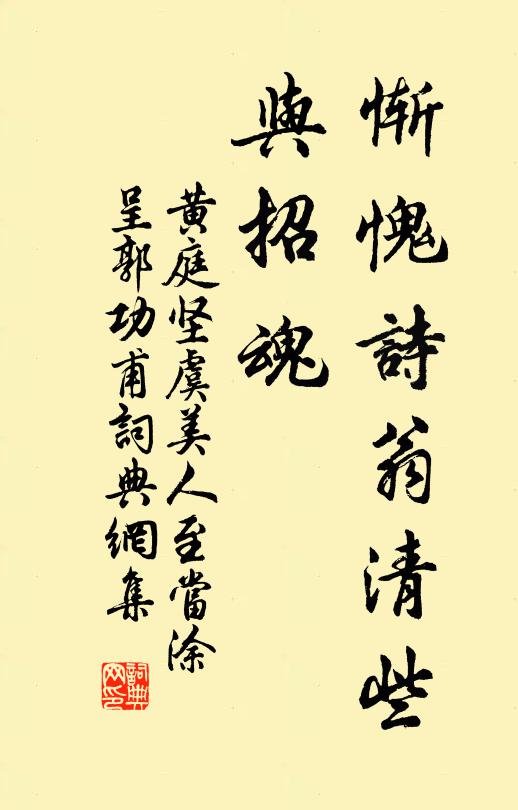 慚愧詩翁清些
與招魂
黄庭坚虞美人至當涂
呈郭功甫詞典網集
詞典网印